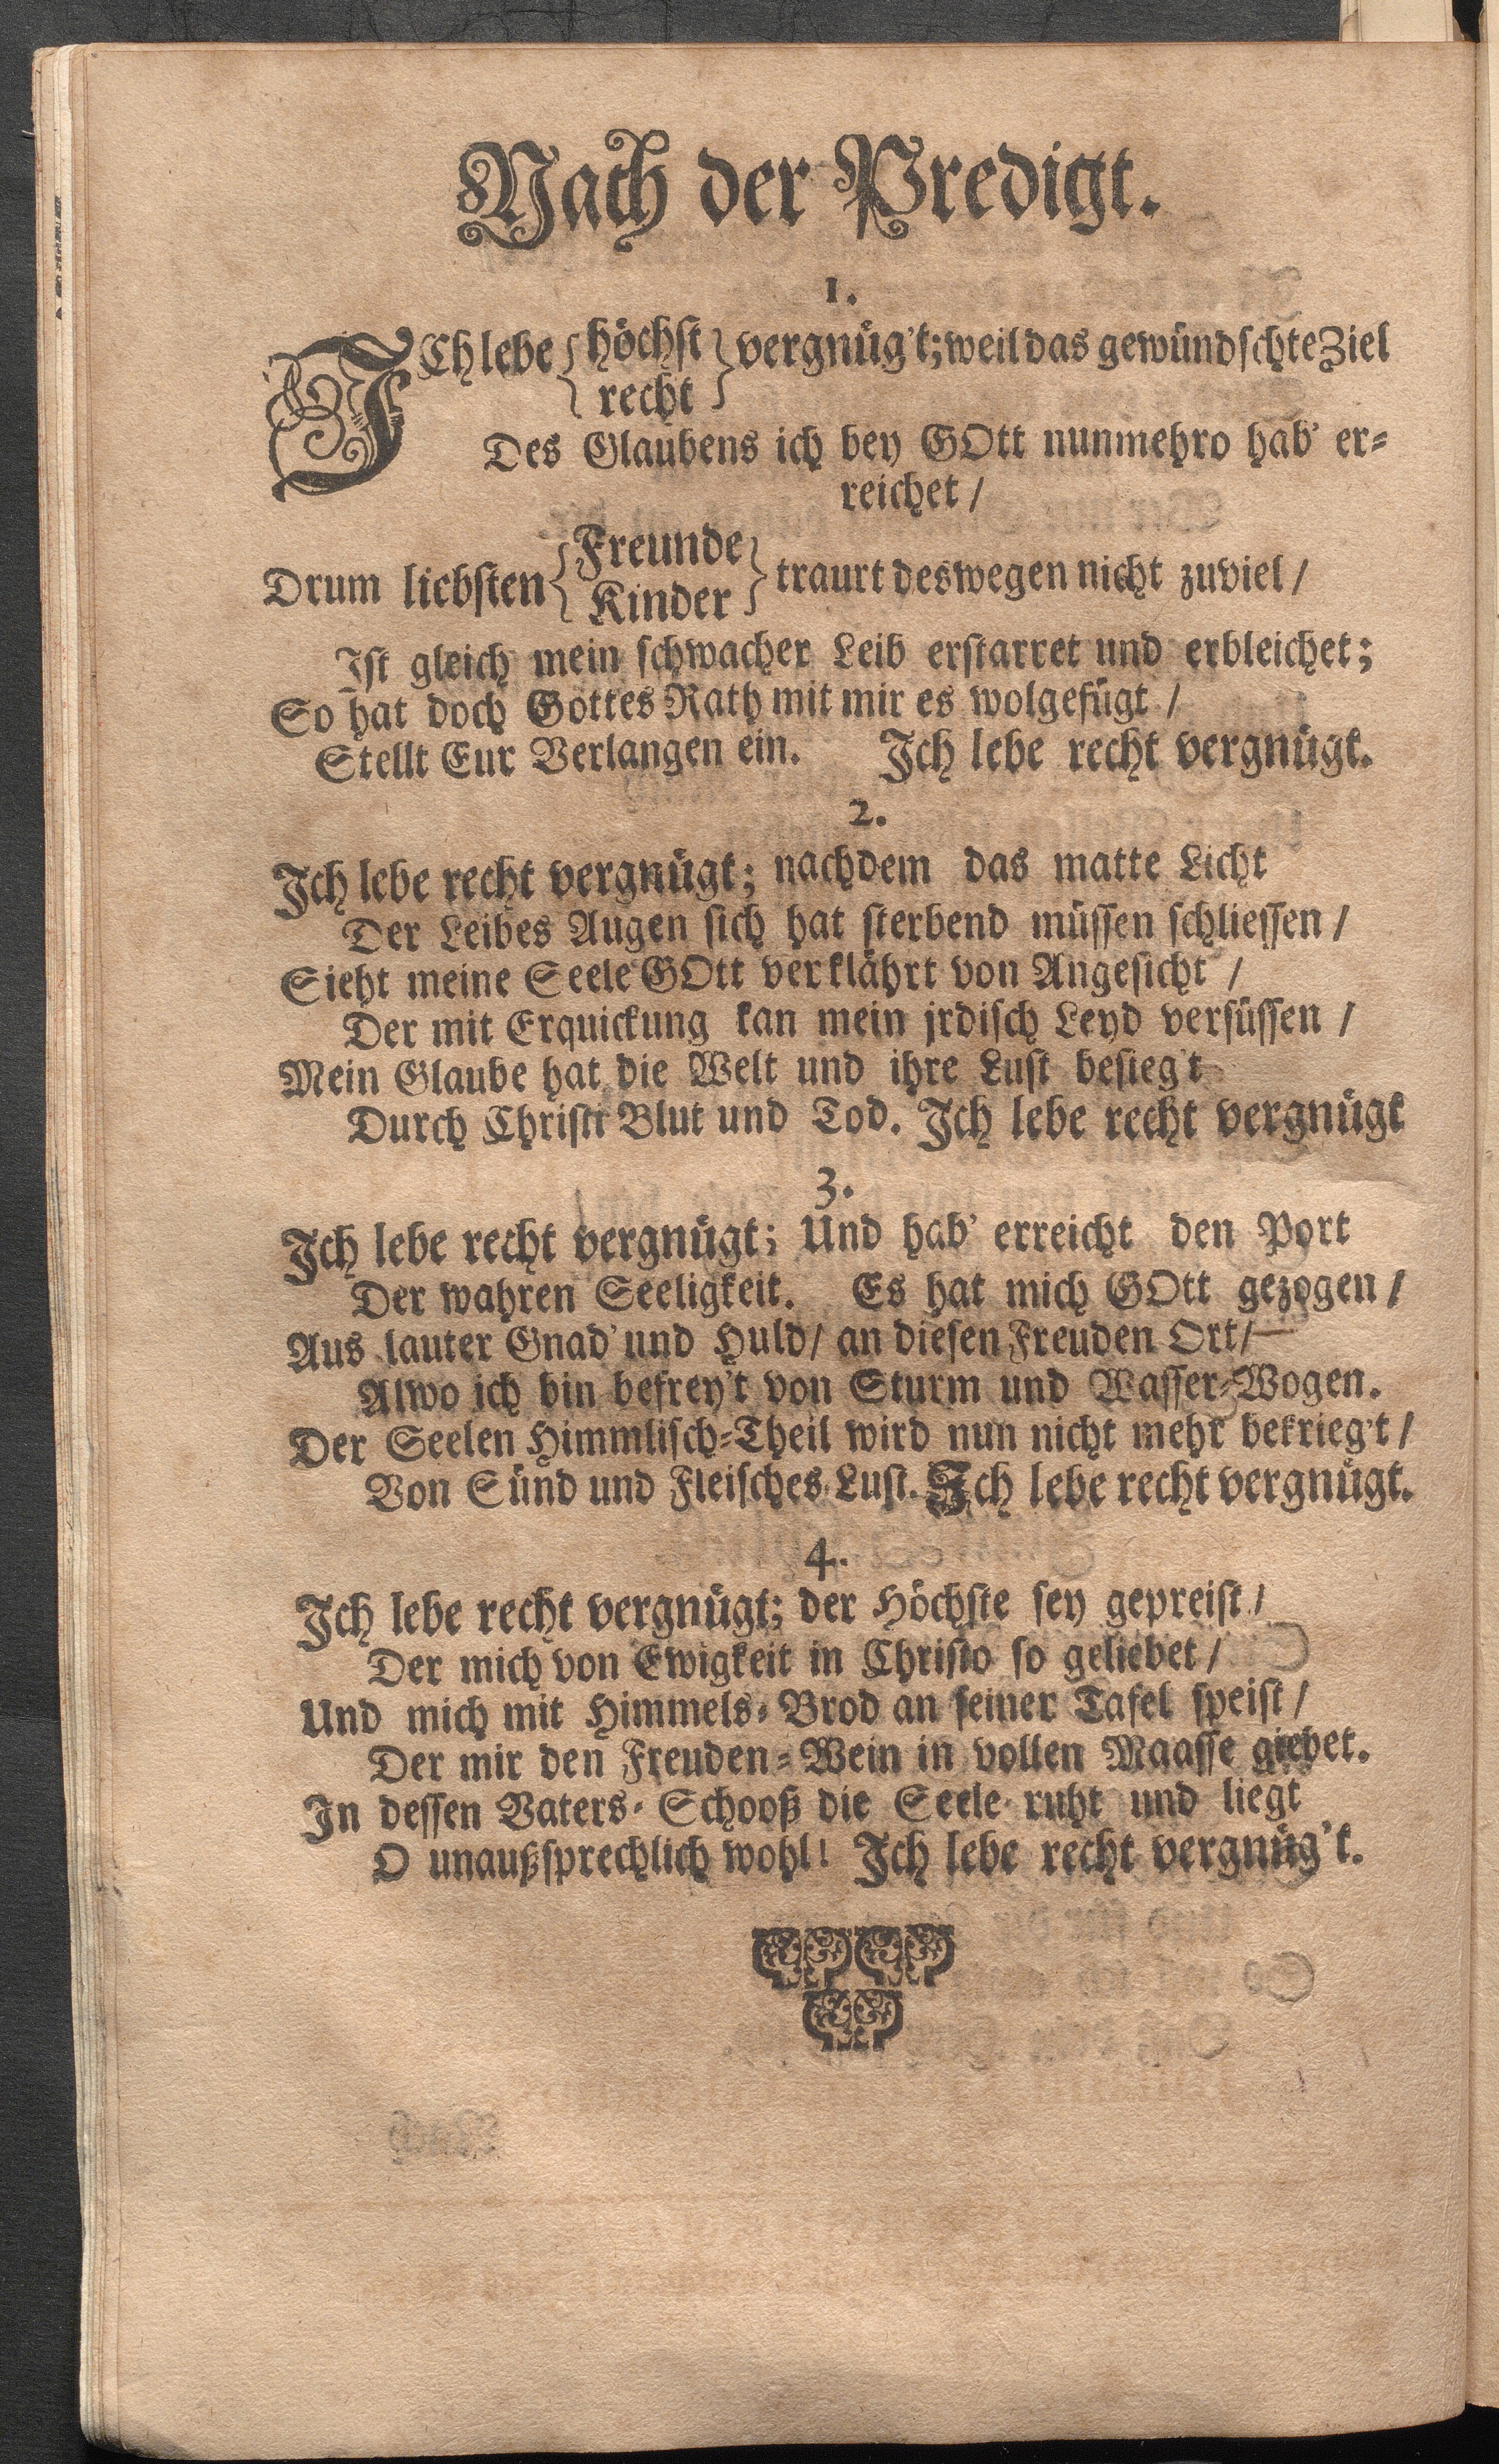 Nach der Predigt.
1.
ICh lebe {höchst recht} vergnüg't; weil das gewündschte Ziel
Des Glaubens ich bey GOtt nunmehro hab' er-
reichet /
Drum liebsten {Freunde Kinder} traurt deswegen nicht zuviel /
Ist gleich mein schwacher Leib erstarret und erbleichet;
So hat doch Gottes Rath mit mir es wolgefügt /
Stellt Eur Verlangen ein. Ich lebe recht vergnügt.
2.
Ich lebe recht vergnügt; nachdem das matte Licht
Der Leibes Augen sich hat sterbend müssen schliessen /
Sieht meine Seele GOtt verklährt von Angesicht /
Der mit Erquickung kan mein jrdisch Leyd versüssen /
Mein Glaube hat die Welt und ihre Lust besieg't
Durch Christi Blut und Tod. Ich lebe recht vergnügt
3.
Ich lebe recht vergnügt; Und hab' erreicht den Port
Der wahren Seeligkeit. Es hat mich GOtt gezogen /
Aus lauter Gnad' und Huld / an diesen Freuden Ort /
Alwo ich bin befrey't von Sturm und Wasser-Wogen.
Der Seelen Himmlisch-Theil wird nun nicht mehr bekrieg't /
Von Sünd und Fleisches-Lust. Ich lebe recht vergnügt.
4.
Ich lebe recht vergnügt; der Höchste sey gepreist /
Der mich von Ewigkeit in Christo so geliebet /
Und mich mit Himmels-Brod an seiner Tafel speist /
Der mir den Freuden-Wein in vollen Maasse giebet.
In dessen Vaters-Schooß die Seele ruht und liegt
O unaußsprechlich wohl! Ich lebe recht vergnüg't.